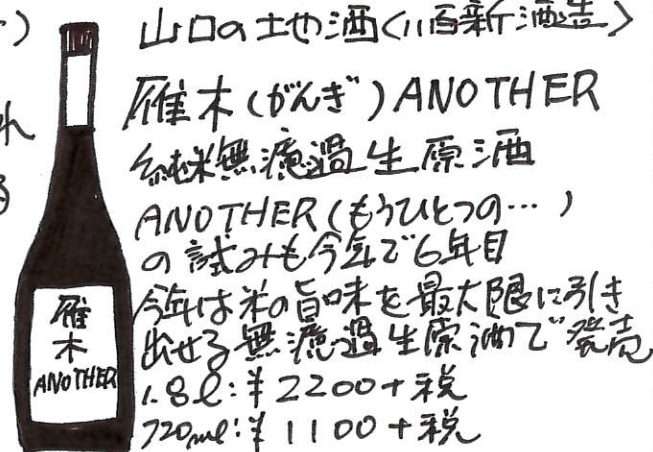 山口の地酒<八百新酒造>
雁木(がんぎ)ANOTHER
純米無濾過生原酒
ANOTHER(もうひとつの…)
の試みも今年で6年目
今年は米の旨味を最大限に引き
出せる無濾過生原酒で発売
1.8ℓ:¥2200+税
720ml:¥1100+税
雁
木
ANOTHER